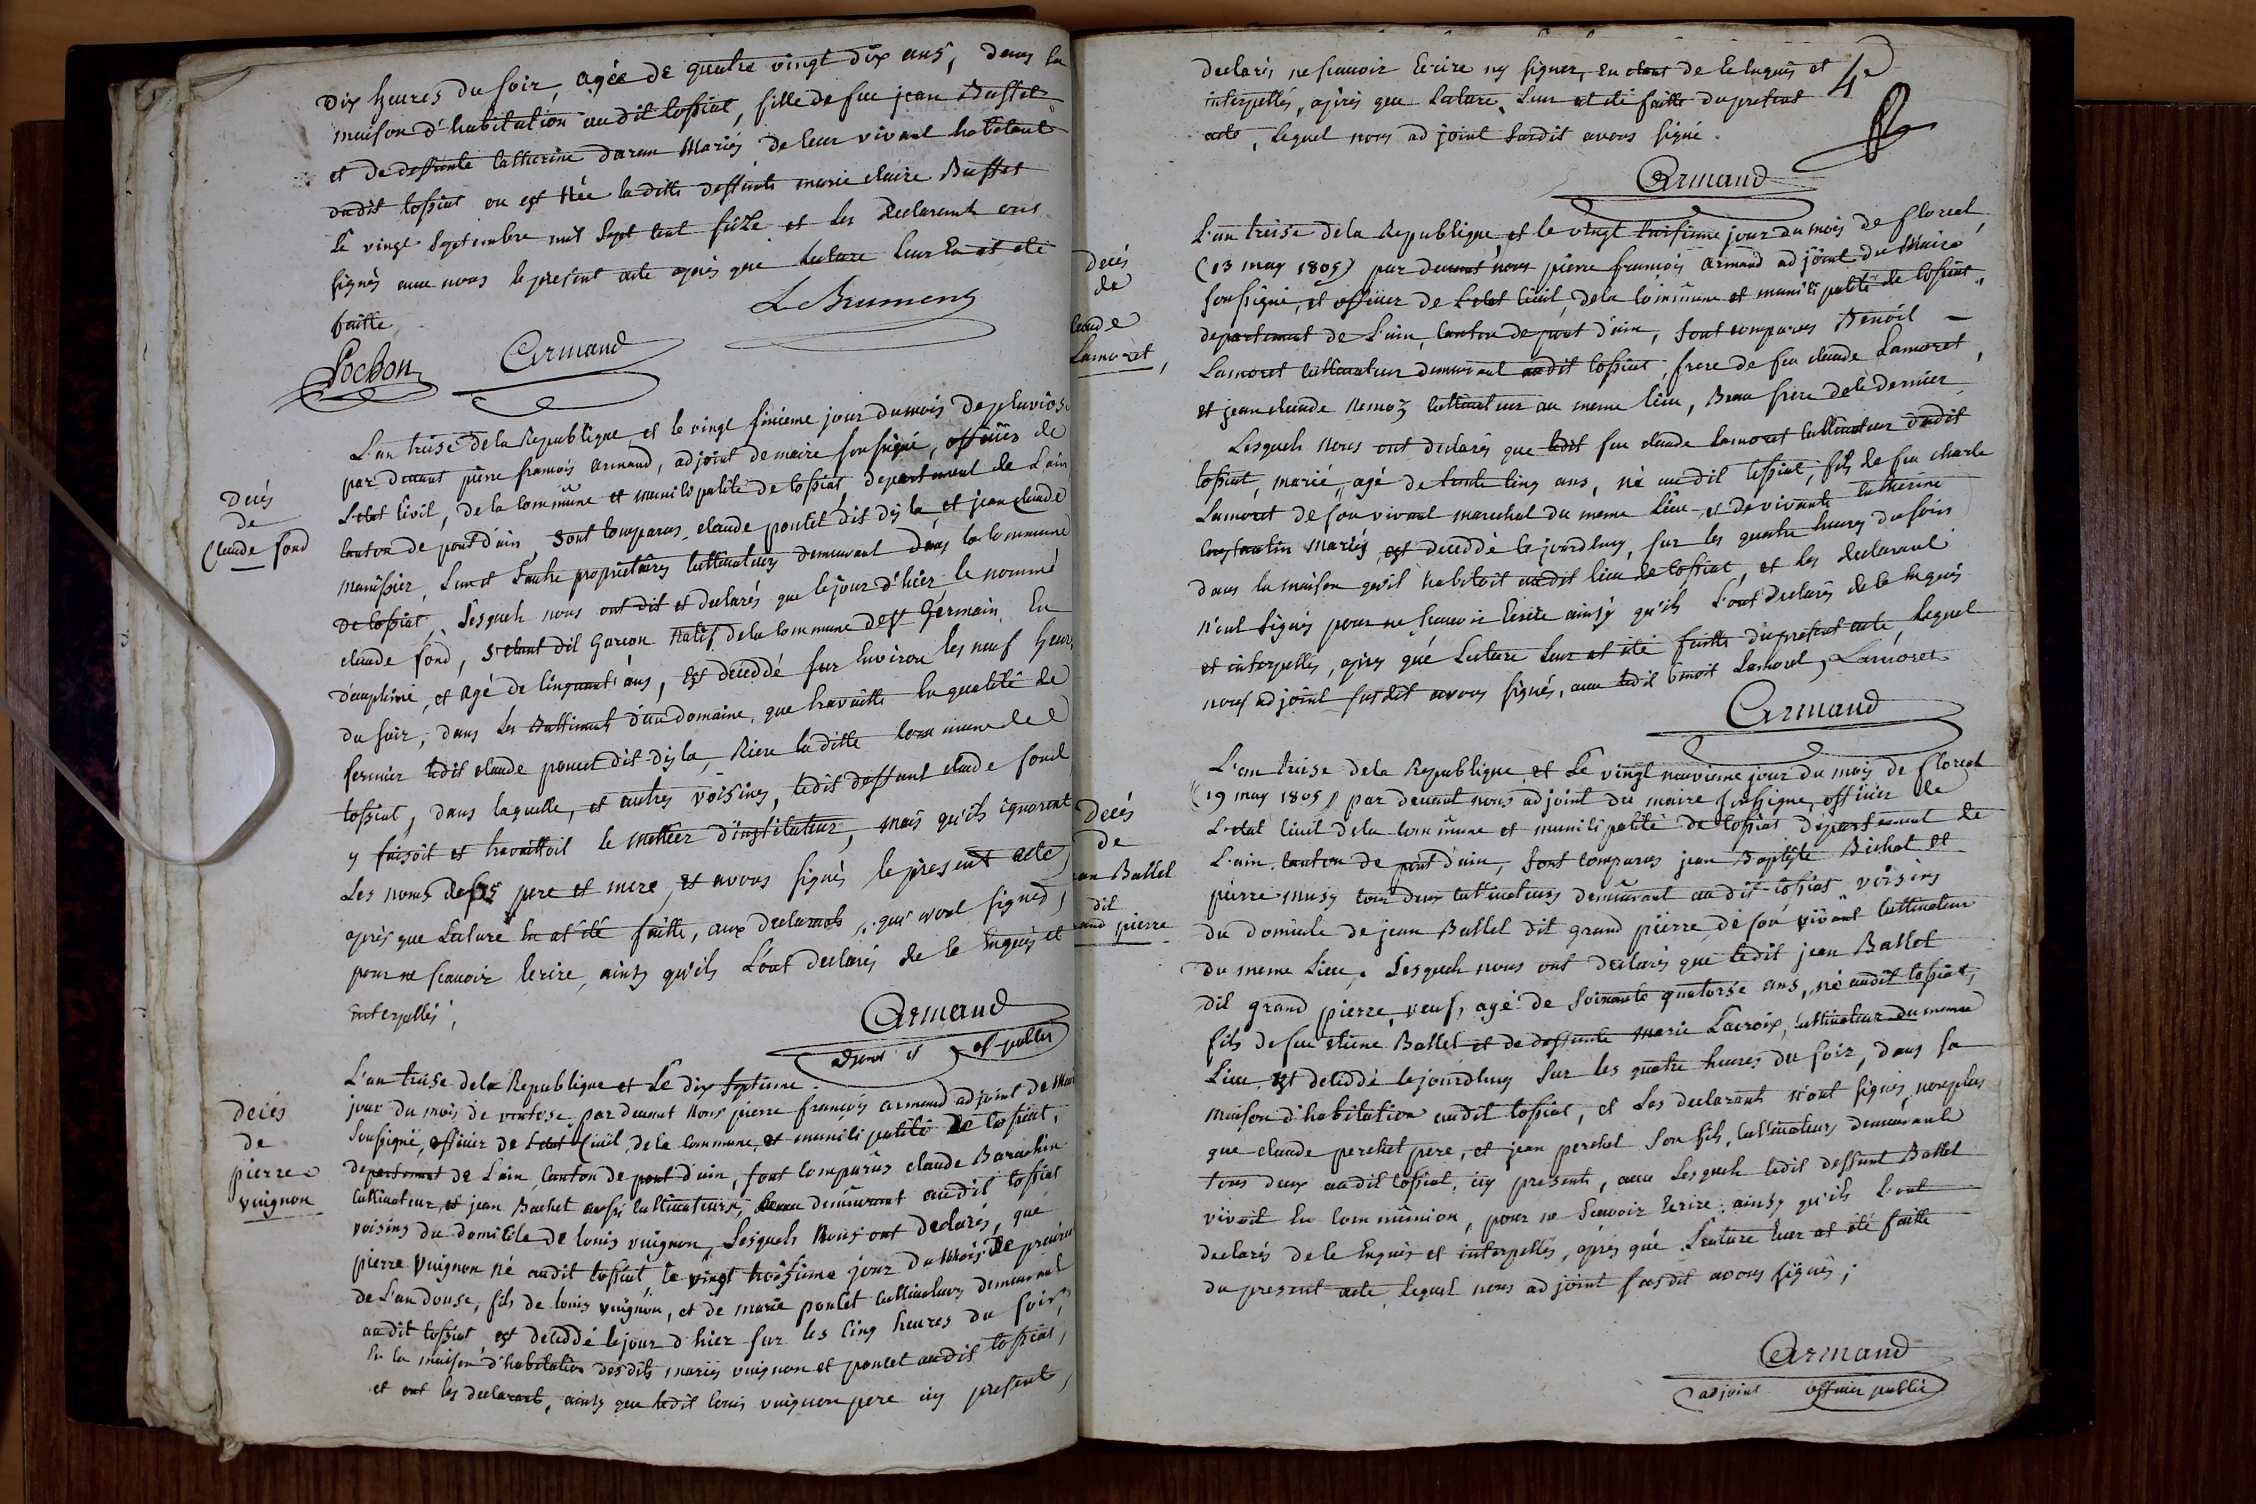 Dix heures du soir, agée de quatre vingt dix ans, dans sa
maison d'habitation audit Cossiat, fille de feu jean Buffet
et de deffunte Catherine daran Mariés de leur vivant habitant
dudit Cossiat ou est Née laditte deffunte marie claire Buffet
Le vingt Septembre mil Sept Cent seize et les Declarants ont
signés avec nous le present acte après que Lecture Leur En at eté
faitte,
Pochon Armand
Decés
de
Claude fond
L'an treise de la Republique et le vingt sixieme jour du mois de pluviose
par devant pierre francois armand, adjoint de maire soussigné, officier de
L'etat Civil, de la Commune et municipalité de Cossiat departement de L'ain
Canton de pont d'ain, Sont Comparus claude poncet dit dyla, et jean Claude
Manissier, L'un et L'autre proprietaires Cultivateurs demeurant dans la Commune
de Cossiat, Lesquels nous ont dit et declarés que le jour d'hier le nommé
claude fond, s'etant dit Garcon Natif de la Commune de St Germain En
dauphiné, et agé de Cinquante ans, Est deceddé sur Environ les neuf heures
du soir, dans les Battiments d'un domaine, que travaille En qualité de
fermier ledit claude poncet dit dyla, Riere laditte Commune de
Cossiat, dans laquelle, et autres voisines, ledit deffunt claude fond
y faisoit et travailloit le mettier d'instituteur, mais qu'ils ignorent
Les noms de ses pere et mere, et avons signés le present acte,
après que Lecture En at eté faitte, aux declarants, qui n'ont signed,
pour ne scavoir Ecrire, ainsy qu'ils L'ont declarés de Ce Enquis et
interpellés,
Armand
adjoint et of public
Decés
de
pierre
vuignon
L'an treise de la Republique et Le dix Septieme
jour du mois de ventose, par devant Nous pierre francois armand adjoint de Maire
Soussigné, officier de L'etat Civil de la Commune, et municipalité de Cossiat,
departement de L'ain, Canton de pont d'ain, sont Comparus claude Barachin
Cultivateur, et jean Buchet aussi Cultivateurs, demeurant audit Cossiat
voisins du domicile de louis vuignon, Lesquels Nous ont declarés, que
pierre Vuignon né audit Cossiat, le vingt troisieme jour du mois de prairial
de L'an douse, fils de louis vuignon, et de marie poncet Cultivateurs demeurant
audit Cossiat est deceddé le jour d'hier sur les Cinq heures du soir,
En la maison d'habitation desdits mariés vuignon et poncet audit Cossiat,
et ont les declarant, ainsy que ledit louis vuignon pere icy present,
declarés ne scavoir Ecrire ny signer, En etant de Ce Enquis et
interpellés, après que Lecture, Leur at eté faitte du present
acte, Lequel nous adjoint susdit avons signé.
4e
Armand
Decés
de
claude
Lamoret,
L'an treise de la Republique, et le vingt troisieme jour du mois de floreal
(13 may 1805) par devant nous pierre francois armand adjoint du Maire
soussigné, et officier de L'etat Civil, de la Commune et municipalité de Cossiat,
departement de L'ain, Canton de pont d'ain, sont Comparus Benoit
Lamoret Cultivateur demeurant audit Cossiat, frere de feu claude Lamoret,
et jean claude Remoz Cultivateur au meme lieu, Beau frere de Ce dernier
Lesquels Nous ont declarés que ledit feu claude Lamoret Cultivateur dudit
Cossiat, marié, agé de trente Cinq ans, né audit Cossiat, fils de feu charle
Lamoret de son vivant marechal du meme lieu, et de vivante Catherine
Constantin Mariés, est deceddé le jourdhuy, sur les quatre heures du soir
dans la maison qu'il habitoit audit lieu de Cossiat, et les declarant
n'ont signés pour ne scavoir Ecrire ainsy qu'ils L'ont declarés de Ce Enquis
et interpellés, après que Lecture Leur at eté faitte du present acte, Lequel
nous adjoint susdit avons signés, avec ledit benoit Lamoret, Lamoret
Armand
Decés
de
jean Ballet
dit
grand pierre
L'an treise de la Republique et Le vingt neuvieme jour du mois de floreal
(19 may 1805) par devant nous adjoint du maire soussigné, officier de
L'etat Civil de la Commune et municipalité de Cossiat departement de
L'ain Canton de pont d'ain, sont Comparus jean Baptiste Bichat et
pierre musy tous deux Cultivateurs demeurant audit Cossiat voisins
du domicile de jean Ballet dit grand pierre, de son vivant Cultivateur
du meme Lieu. Lesquels nous ont declarés que ledit jean Ballet
dit grand pierre, veuf, agé de soixante quatorse ans, né audit Cossiat,
fils de feu etiene Ballet et de deffunte Marie Lacroix, Cultivateur du meme
Lieu, Est deceddé le jourdhuy sur les quatre heures du soir, dans sa
maison d'habitation audit Cossiat, et Les declarants n'ont signés, nonplus
que claude perchet pere, et jean perchet son fils, Cultivateurs demeurant
tous deux audit Cossiat, icy presents, avec Lesquels ledit deffunt Ballet
vivoit En Communion, pour ne scavoir Ecrire, ainsy qu'ils L'ont
declarés de Ce Enquis et interpellés, après que Lecture leur at eté faitte
du present acte Lequel nous adjoint susdit avons signés;
Armand
adjoint officier public